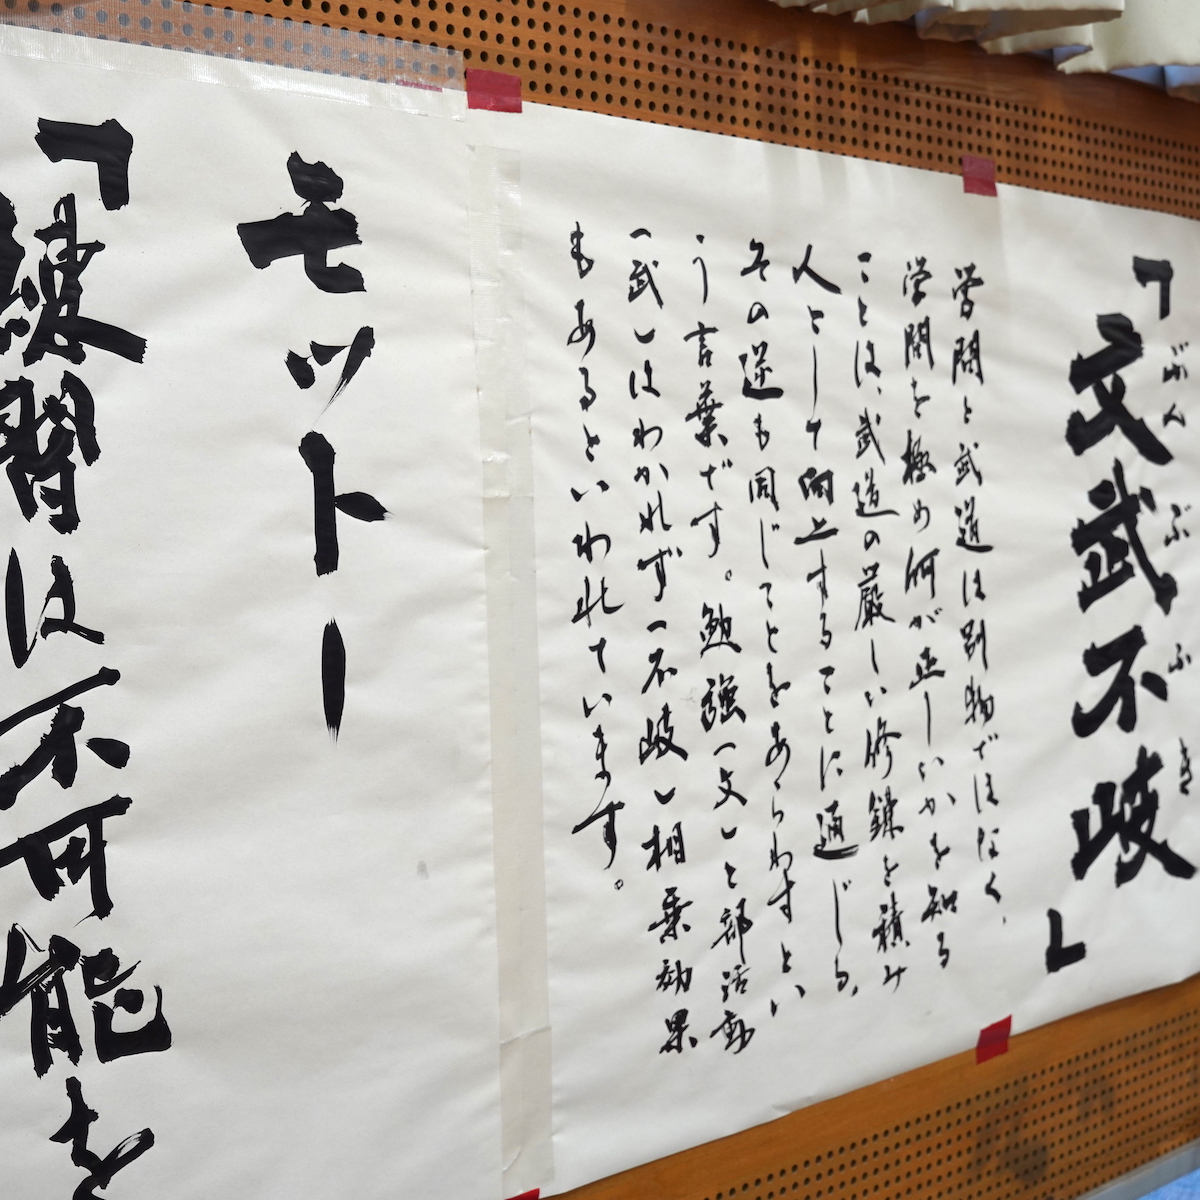 「文武不岐」
ぶんぶふき
学問と武道は別物ではなく、
学問を極め何が正しいかを知る
ことは、武道の厳しい修錬を積み
人として向上することに通じる、
その逆も同じことをあらわすとい
う言葉です。勉強「文」と部活動
「武」はわかれず「不岐」相乗効果
もあるといわれています。
モットー
「練習は不可能を